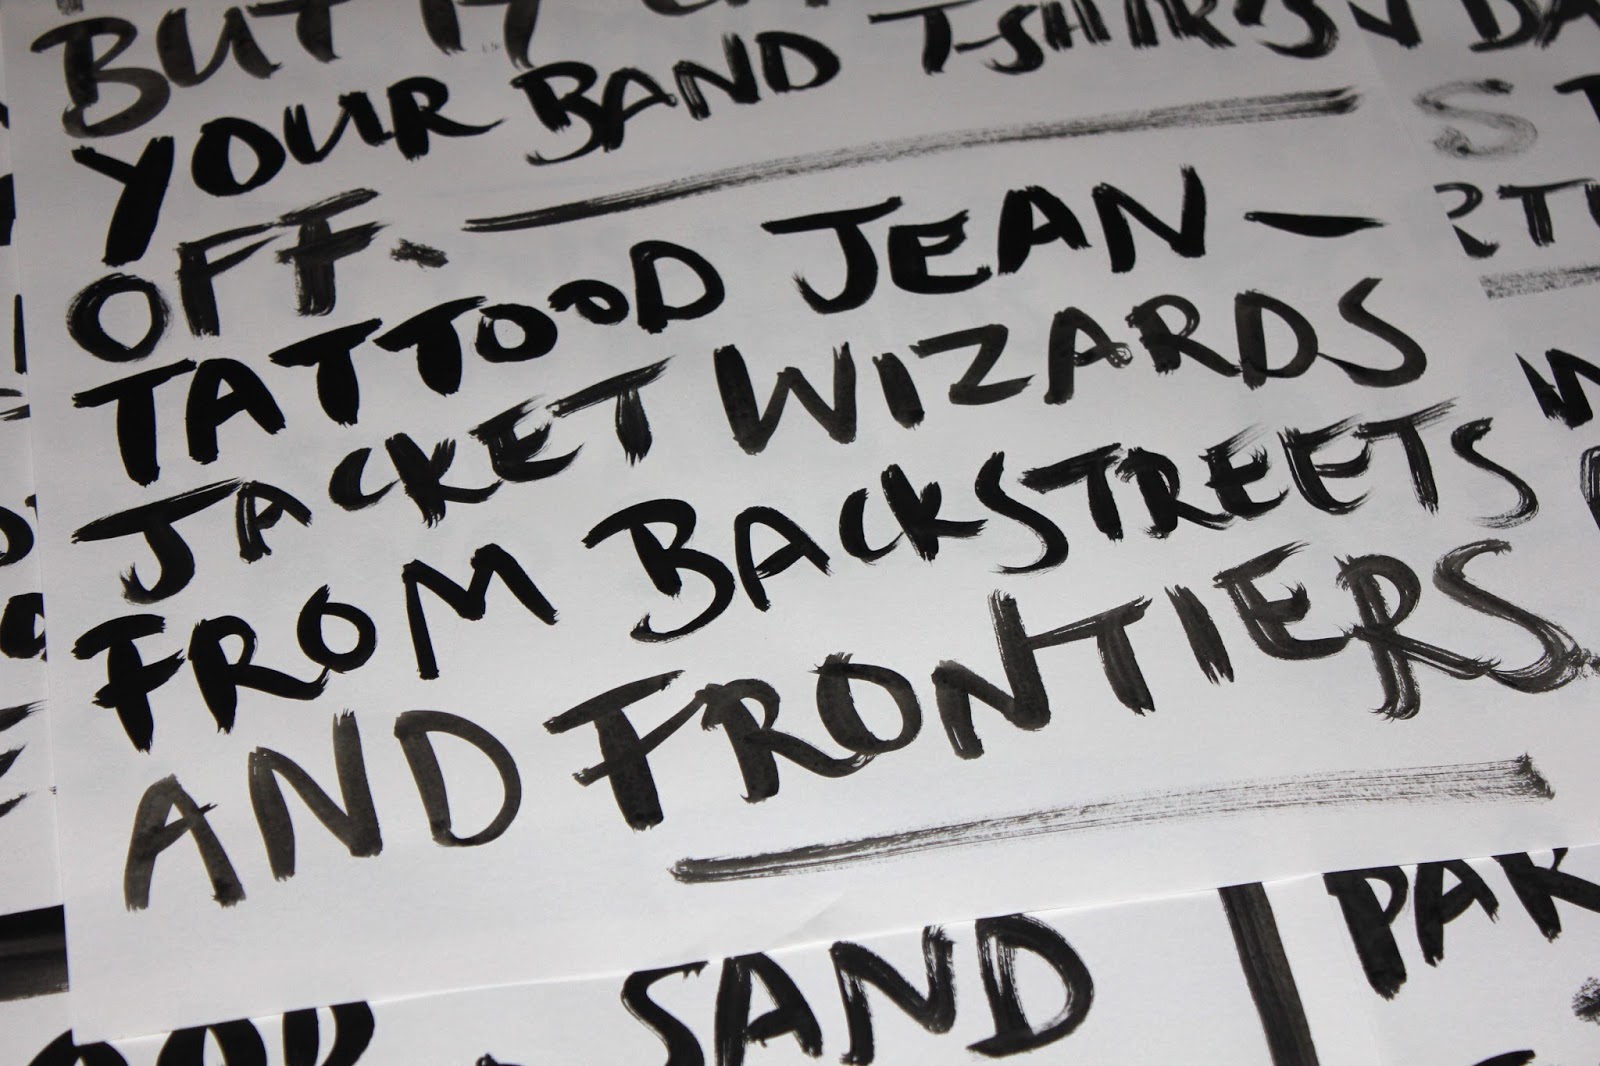 BUT IT
YOUR BAND T-SHIRTS
OFF.
TATTOOD JEAN-
JACKET WIZARDS
FROM BACKSTREETS
AND FRONTIERS
SAND